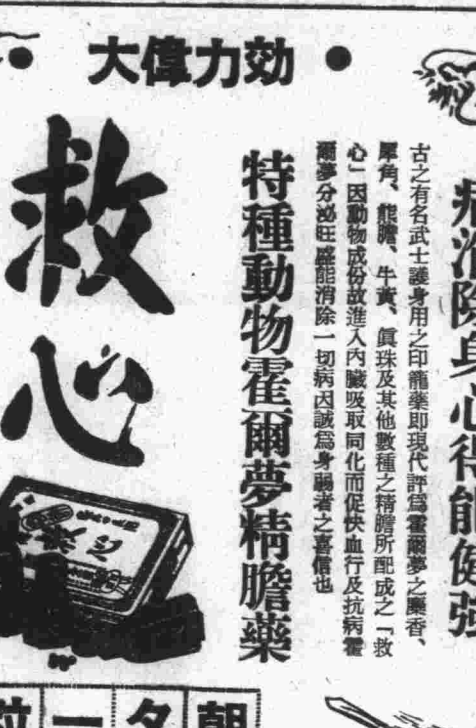 効力偉大
病消除身心得能健強
古之有名武士護身用之印籠藥即現代評爲霍爾夢之麝香、
犀角、熊膽、牛黃、眞珠及其他數種之精膽所配成之「救
心」因動物成份故進入內臟吸取同化而促快血行及抗病霍
爾夢分泌旺盛能消除一切病因誠爲身弱者之喜信也
特種動物霍爾夢精膽藥
救心
救心
朝夕一粒